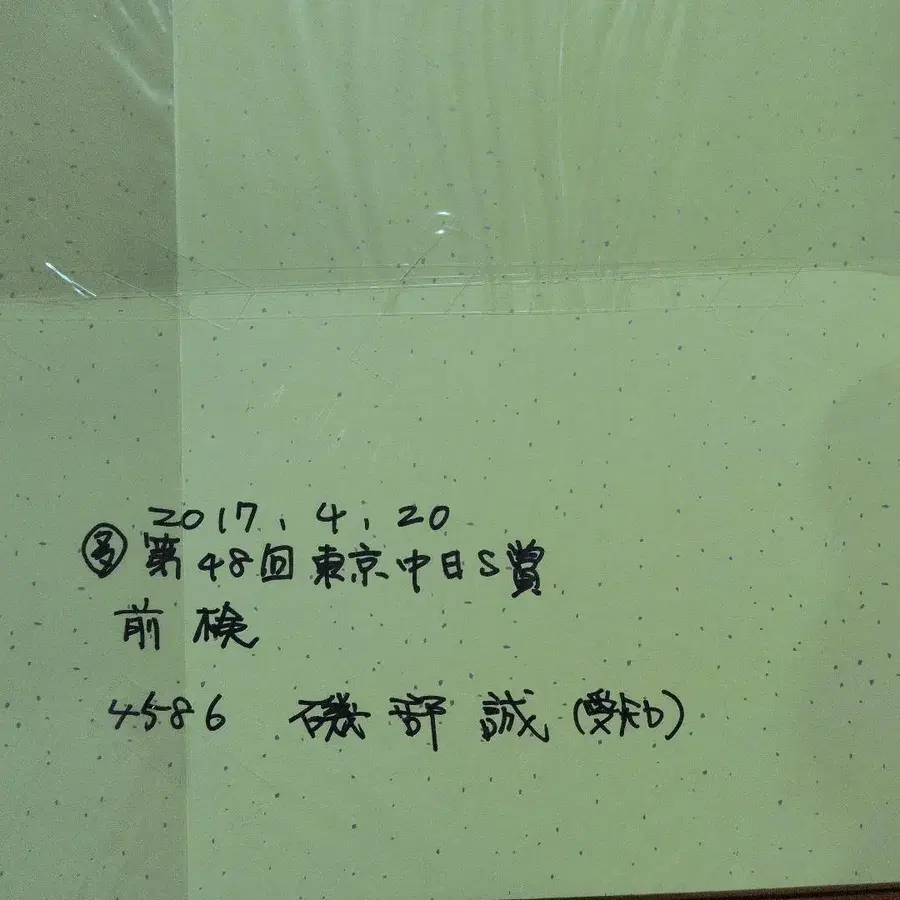 2017.4.20
㊎第48回東京中日S賞
前検
4586 磯部誠(愛知)